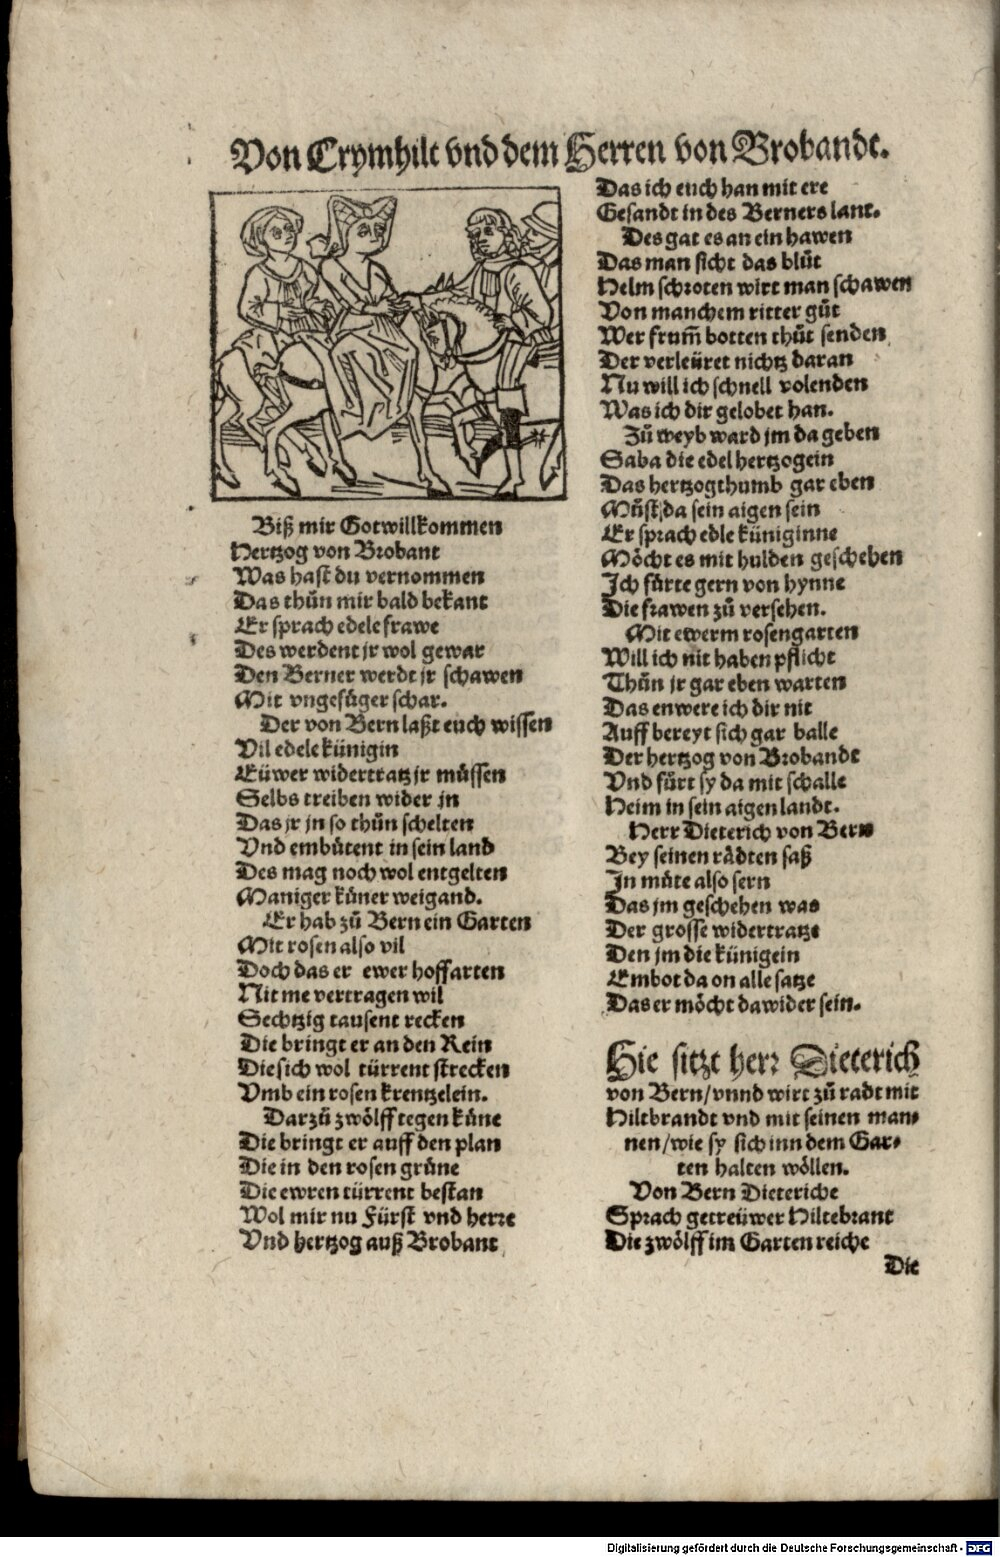 Von Crymhilt vnd dem Herren von Brobandt.
Biß mir Got willkommen
Hertzog von Brobant
Was hast du vernommen
Das thůn mir bald bekant
Er sprach edele frawe
Des werdent jr wol gewar
Den Berner werdt jr schawen
Mit vngefůger schar.
Der von Bern laßt euch wissen
Vil edele künigin
Eüwer widertratz jr müssen
Selbs treiben wider jn
Das jr jn so thůn schelten
Vnd embütent in sein land
Des mag noch wol entgelten
Maniger küner weigand.
Er hab zů Bern ein Garten
Mit rosen also vil
Doch das er ewer hoffarten
Nit me vertragen wil
Sechtzig tausent recken
Die bringt er an den Rein
Die sich wol türrent strecken
Vmb ein rosen krentzelein.
Darzů zwölff tegen küne
Die bringt er auff den plan
Die in den rosen grüne
Die ewren türrent bestan
Wol mir nu Fürst vnd herre
Vnd hertzog auß Brobant
Das ich euch han mit ere
Gesandt in des Berners lant.
Des gat es an ein hawen
Das man sicht das blůt
Helm schroten wirt man schawen
Von manchem ritter gůt
Wer frum̃ botten thůt senden
Der verleüret nichtz daran
Nu will ich schnell volenden
Was ich dir gelobet han.
Zů weyb ward jm da geben
Saba die edel hertzogein
Das hertzogthumb gar eben
Můst da sein aigen sein
Er sprach edle küniginne
Möcht es mit hulden geschehen
Ich fürte gern von hynne
Die frawen zů versehen.
Mit ewerm rosengarten
Will ich nit haben pflicht
Thůn jr gar eben warten
Das enwere ich dir nit
Auff bereyt sich gar balle
Der hertzog von Brobandt
Vnd fürt sy da mit schalle
Heim in sein aigen landt.
Herr Dieterich von Bern
Bey seinen rädten saß
In můte also sern
Das jm geschehen was
Der grosse widertratze
Den jm die künigein
Embot da on alle satze
Das er möcht dawider sein.
Hie sitzt herr Dieterich
von Bern/ vnnd wirt zů radt mit
Hiltbrandt vnd mit seinen man-
nen/ wie sy sich inn dem Gar-
ten halten wöllen.
Von Bern Dieteriche
Sprach getreüwer Hiltebrant
Die zwölff im Garten reiche
Die
Digitalisierung gefördert durch die Deutsche Forschungsgemeinschaft - DFG